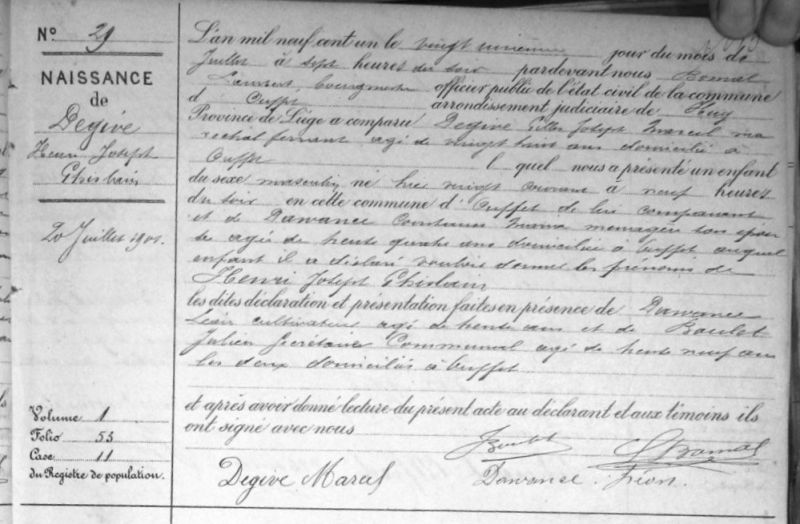 N° 29
NAISSANCE
de
Degive
Henri Joseph
Ghislain
20 Juillet 1901.
Volume 1
Folio 53
Case 11
du Registre de population.
L'an mil neuf cent un le vingt unième jour du mois de
Juillet à sept heures du soir pardevant nous Bomal
Laurent, bourgmestre officier public de l'état civil de la commune
d Ouffet arrondissement judiciaire de Huy
Province de Liége a comparu Degive Joseph Marcel ma
rechal ferrant agé de vingt huit ans domicilié à
Ouffet l quel nous a présenté un enfant
du sexe masculin né hier vingt courant à neuf heures
du soir en cette commune d'Ouffet de lui comparant
et de Dawance Maria menagère son epou
se agée de trente quatre ans domiciliée à Ouffet auquel
enfant il a déclaré vouloir donner les prénoms de
Henri Joseph Ghislain
les dites déclaration et présentation faites en présence de Dawance
Léon cultivateur agé de trente ans et de Boulet
Julien Secrétaire Communal agé de trente neuf ans
les deux domiciliés à Ouffet
et après avoir donné lecture du présent acte au déclarant et aux témoins ils
ont signé avec nous
JBoulet LBomal
Degive Marcel Dawance Léon.